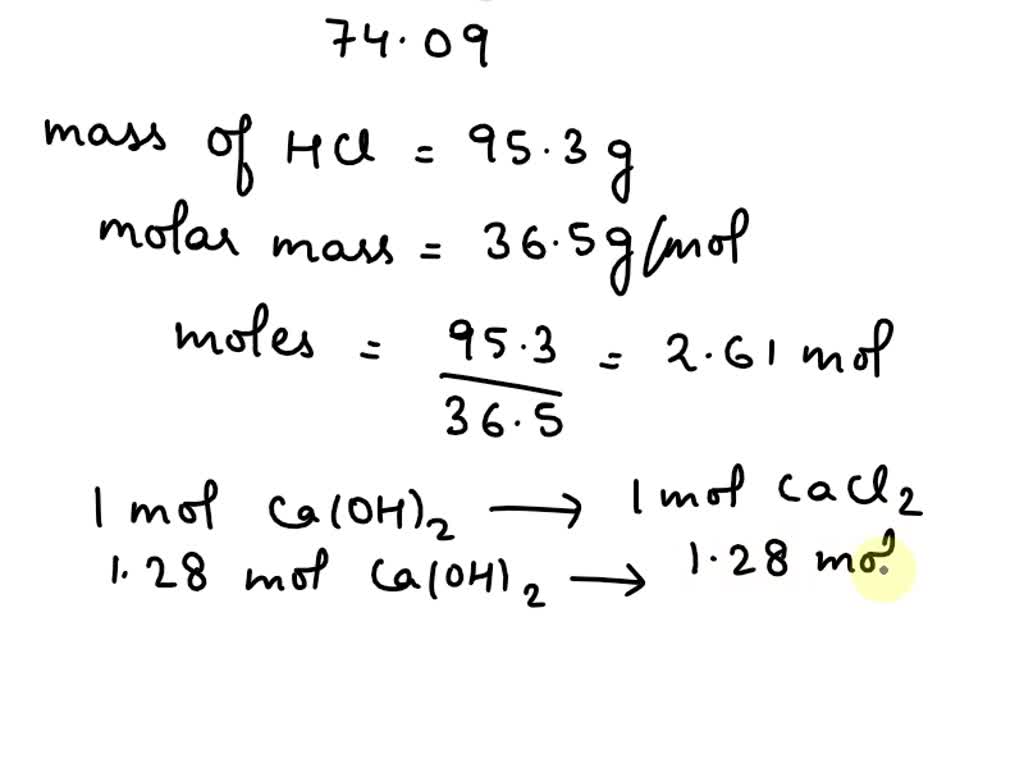 74.09
mass of HCl = 95.3 g
molar mass = 36.5 g/mol
moles = 95.3 / 36.5 = 2.61 mol
1 mol Ca(OH)2 → 1 mol CaCl2
1.28 mol Ca(OH)2 → 1.28 mol